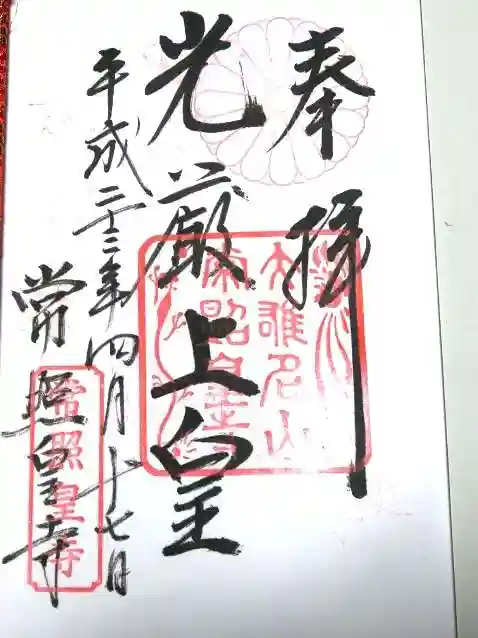 奉拝
光厳上皇
平成二十三年四月十七日
常照皇寺
大雄名山
常照皇寺
常照皇寺